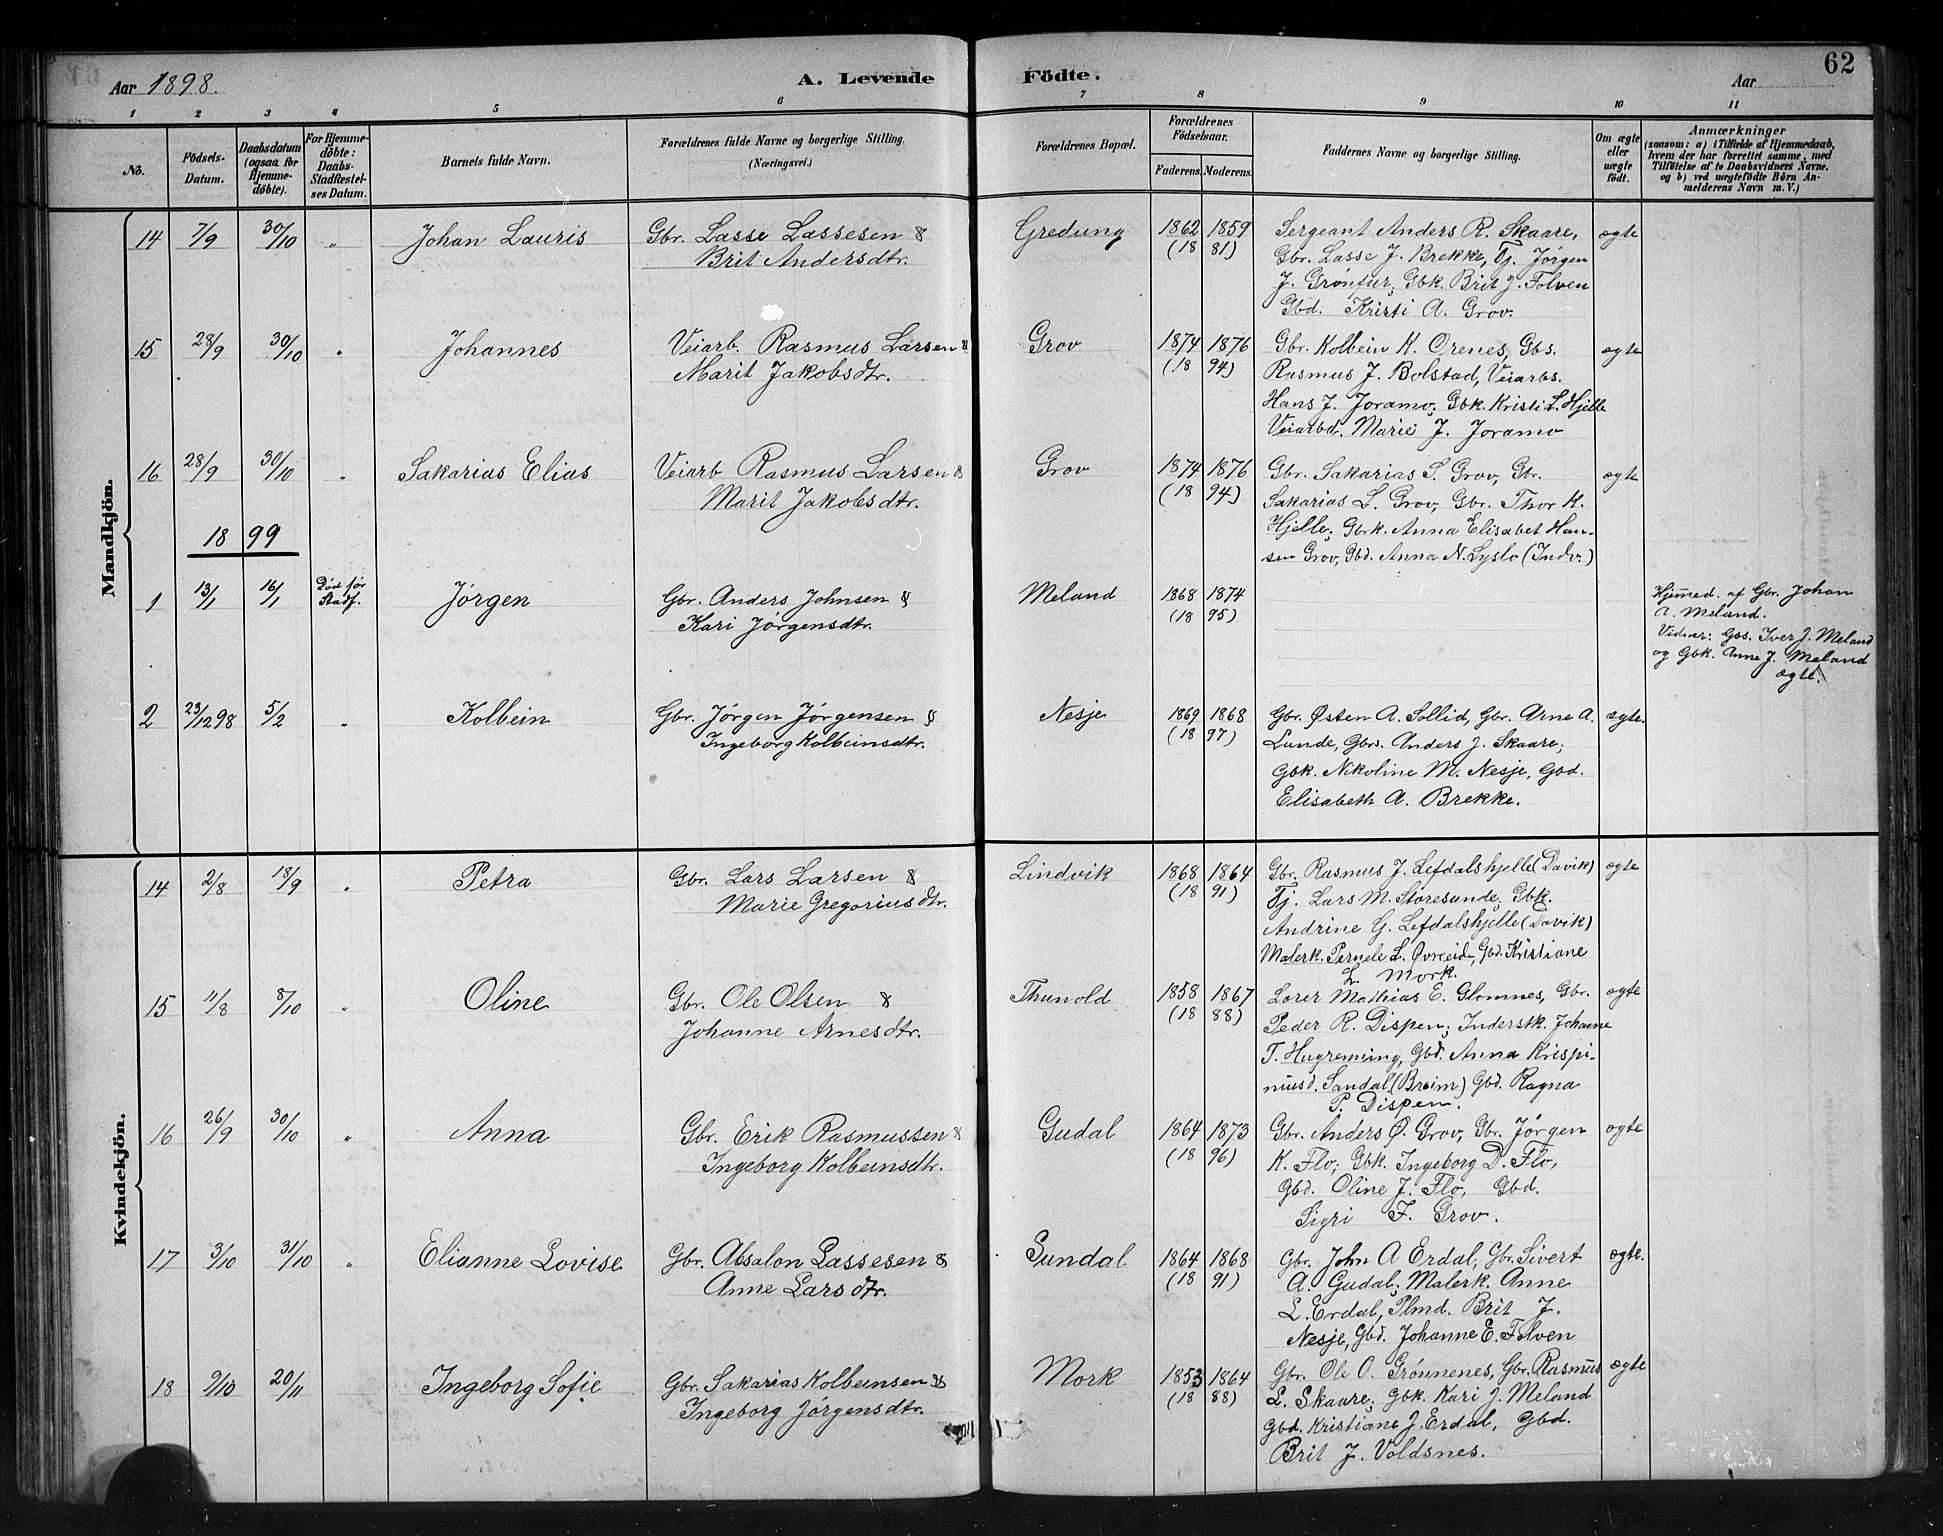 Aar 1898.
A. Levende
Födte.
Aar
62
1 2 3 4 5 6 7 8 9 10 11
No.
Födsels-
Datum.
Daabsdatum
(ogsaa for
Hjemme-
döbte).
For Hjemme-
döbte:
Daabs-
Stadfæstel-
ses Datum.
Barnets fulde Navn.
Forældrenes fulde Navne og borgerlige Stilling.
(Næringsvei.)
Forældrenes Bopæl.
Forældrenes
Födselsaar.
Faderens. Moderens.
Faddernes Navne og borgerlige Stilling.
Om ægte
eller
uægte
födt.
Anmærkninger
(saasom: a) i Tilfælde af Hjemmedaab,
hvem der har forrettet samme, med
Tilföielse af to Daabsvidners Navne.
og b) ved uægtefödte Börn An-
melderens Navn m. V.)
Mandkjön.
14 7/9 30/10 „ Johan Lauris Gbr. Lasse Lassesen &
Brit Andersdtr.
Gredung 1862 1859
(18 81)
Sergeant Anders R. Skaare,
Gbr. Lasse J. Brekke, Tj. Jørgen
J. Grønfur; Gbk. Brit J. Folven
Gbd. Kristi A. Grov.
ægte
15 28/9 30/10 „ Johannes Veiarb. Rasmus Larsen &
Marit Jakobsdtr.
Grov 1874 1876
(18 94)
Gbr. Kolbein K. Orenes, Gbs.
Rasmus J. Bolstad, Veiarbs.
Hans J. Joramo; Gbk. Kristi L. Hjelle
Veiarbd. Marie J. Joramo
ægte
16 28/9 30/10 „ Sakarias Elias Veiarb Rasmus Larsen &
Marit Jakobsdtr.
Grov 1874 1876
(18 94)
Gbr. Sakarias S. Grov, Gbr.
Sakarias L. Grov, Gbr. Thor K.
Hjelle; Gbrk. Anna Elisabet Han-
sen Grov, Gbd. Anna N. Lyslo (Indv.)
ægte
1899
1 13/1 16/1 Død før
Stadf.
Jørgen Gbr. Anders Johnsen &
Kari Jørgensdtr.
Meland 1868 1874
(18 95)
Hjemmed. af Gbr. Johan
A. Meland.
Vidner: Gbs. Iver J. Meland
og Gbk. Anne J. Meland
ægte.
2 23/12 98 5/2 „ Kolbein Gbr. Jørgen Jørgensen &
Ingeborg Kolbeinsdtr.
Nesje 1869 1868
(18 97)
Gbr. Østen A. Sollid, Gbr. Arne A.
Lunde, Gbrs. Anders J. Skaare;
Gbk. Nikoline M. Nesje, Gbd.
Elisabeth A. Brekke.
ægte.
Kvindekjön.
14 2/8 18/9 „ Petra Gbr. Lars Larsen &
Marie Gregoriusdtr.
Lindvik 1868 1864
(18 91)
Gbr. Rasmus J. Lefdalshjelle (Davik)
Tj. Lars M. Storesunde; Gbk.
Andrine G. Lefdalshjelle (Davik)
Malerk. Pernele L. Øvreeide, Gbd. Kristiane
L. Mork.
ægte
15 11/8 8/10 „ Oline Gbr. Ole Olsen &
Johanne Arnesdtr.
Thunold 1858 1867
(18 88)
Lorer Mathias E. Glomnes, Gbr.
Peder R. Dispen; Inderstk. Johanne
T. Hugrenning, Gbd. Anna Krispi-
nusd. Sandal (Breim) Gbd. Ragna
P. Dispen.
ægte
16 26/9 30/10 „ Anna Gbr. Erik Rasmussen &
Ingeborg Kolbeinsdtr.
Gudal 1864 1873
(18 96)
Gbr. Anders Ø. Grov, Gbr. Jørgen
K. Flo; Gbk. Ingeborg D. Flo,
Gbd. Oline J. Flo, Gbd.
Sigri F. Grov.
ægte
17 3/10 31/10 „ Elianne Lovise Gbr. Absalon Lassesen &
Anne Larsdtr.
Sundal 1864 1868
(18 91)
Gbr. John A Erdal, Gbr. Sivert
A. Gudal; Malerk. Anne
L. Erdal, Plmd. Brit J.
Nesje, Gbd. Johanne E. Folven
ægte.
18 9/10 20/11 Ingeborg Sofie Gbr. Sakarias Kolbeinsen &
Ingeborg Jørgensdtr.
Mork 1853 1864
(18 88)
Gbr. Ole O. Grønnenes, Gbr. Rasmus
L. Skaare; Gbk. Kari J. Meland
Gbd. Kristiane J. Erdal, Gbd.
Brit J. Voldsnes.
ægte